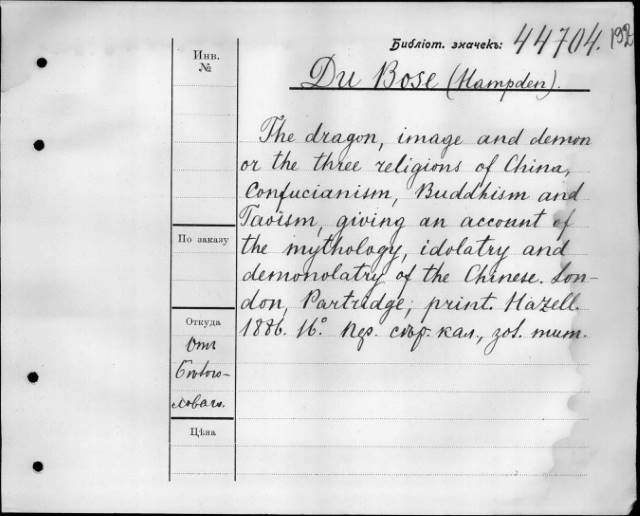 Библіот. значекъ: 44704. 192
Инв.
№
Du Bose (Hampden).
The dragon, image and demon
or the three religions of China,
Confucianism, Buddhism and
Taoism, giving an account of
the mythology, idolatry and
demonolatry of the Chinese. Lon-
don, Partridge; print. Hazell.
1886. 16°. Пер. кал., зол. тит.
По заказу
Откуда
Отъ
Цѣна